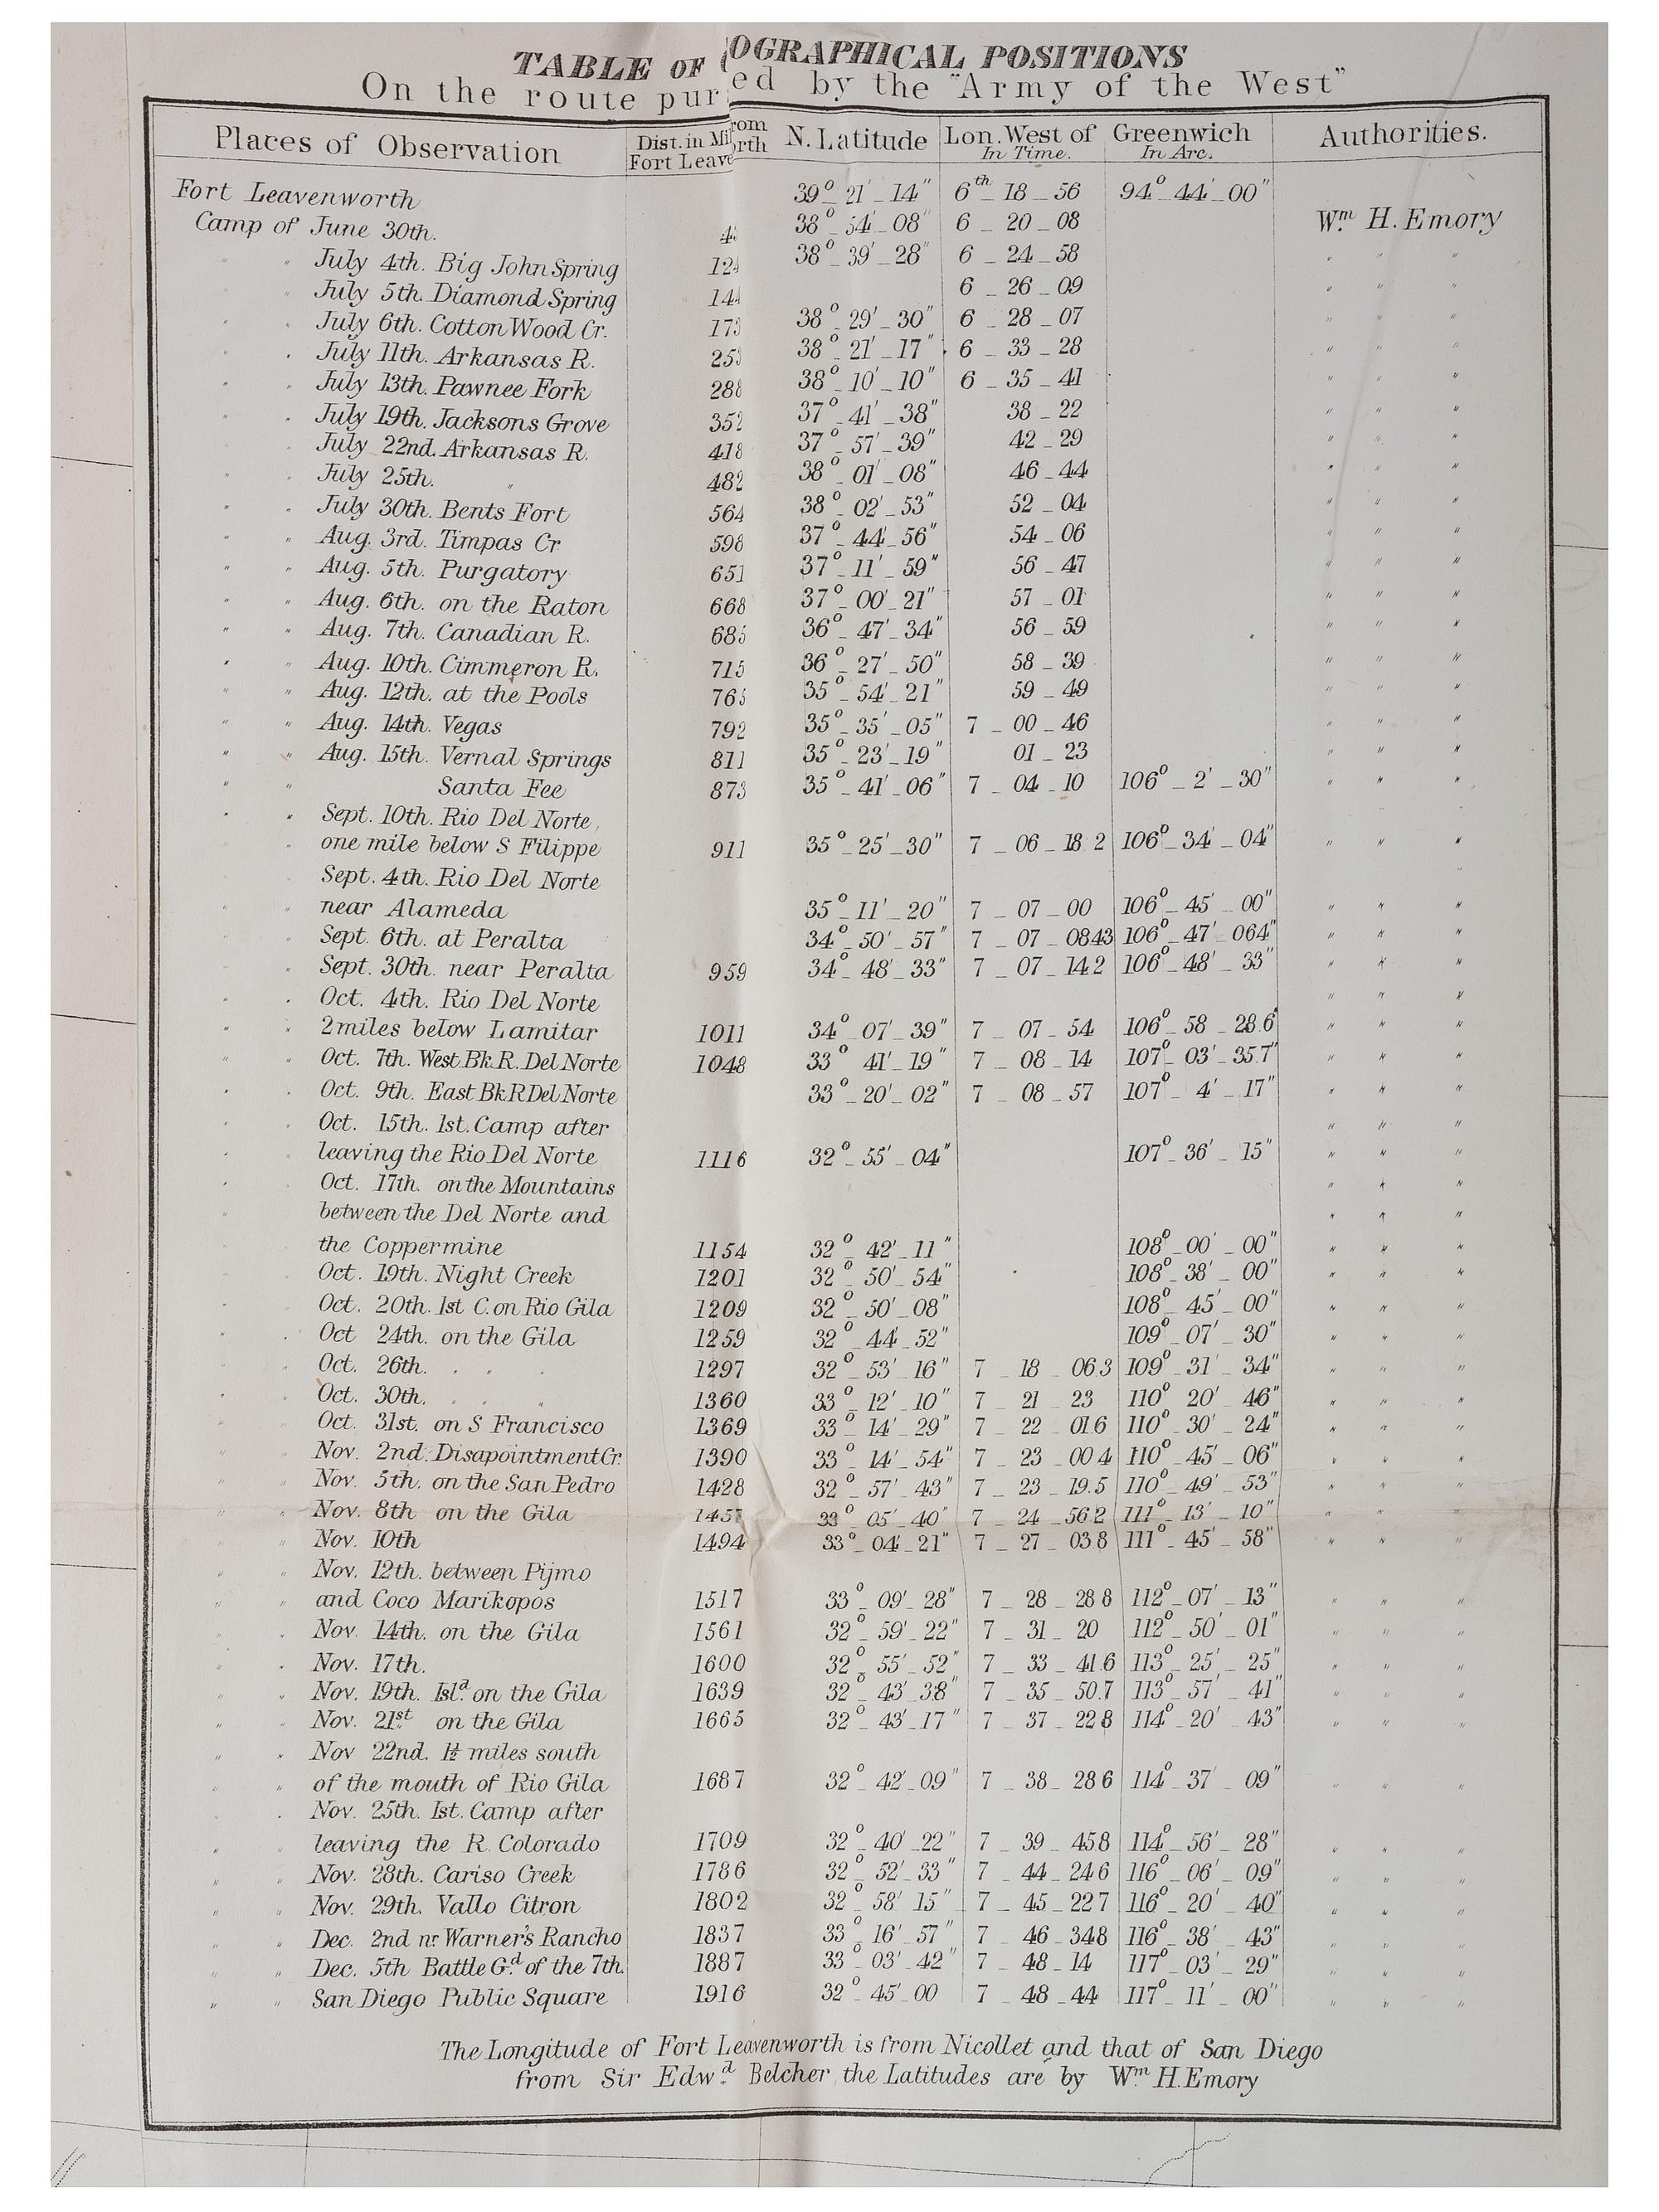 TABLE OF OGRAPHICAL POSITIONS
On the route pur ed by the "Army of the West"
Places of Observation Dist. in Mil rom Fort Leave orth N. Latitude Lon. West of Greenwich Authorities.
In Time. In Arc.
Fort Leavenworth 39° 21' 14" 6th 18 56 94° 44' 00"
Camp of June 30th. 38° 54' 08" 6 20 08 Wm. H. Emory
" " July 4th. Big John Spring 12 38° 39' 28" 6 24 58 " " "
" July 5th. Diamond Spring 14 6 26 09 " " "
" " July 6th. Cotton Wood Cr. 17 38° 29' 30" 6 28 07 " " "
" " July 11th. Arkansas R. 25 38° 21' 17" 6 33 28 " " "
" " July 13th. Pawnee Fork 288 38° 10' 10" 6 35 41 " " "
" " July 19th. Jacksons Grove 352 37° 41' 38" 38 22 " " "
" " July 22nd. Arkansas R. 418 37° 57' 39" 42 29 " " "
" " July 25th. " 482 38° 01' 08" 46 44 " " "
" " July 30th. Bents Fort 564 38° 02' 53" 52 04 " " "
" " Aug. 3rd. Timpas Cr 598 37° 44' 56" 54 06 " " "
" " Aug. 5th. Purgatory 651 37° 11' 59" 56 47 " " "
" " Aug. 6th. on the Raton 668 37° 00' 21" 57 01 " " "
" " Aug. 7th. Canadian R. 685 36° 47' 34" 56 59 " " "
" " Aug. 10th. Cimmeron R. 715 36° 27' 50" 58 39 " " "
" " Aug. 12th. at the Pools 765 35° 54' 21" 59 49 " " "
" " Aug. 14th. Vegas 792 35° 35' 05" 7 00 46 " " "
" " Aug. 15th. Vernal Springs 811 35° 23' 19" 01 23 " " "
" " Santa Fee 873 35° 41' 06" 7 04 10 106° 2' 30" " " "
" " Sept. 10th. Rio Del Norte,
one mile below S Filippe 911 35° 25' 30" 7 06 18 2 106° 34' 04" " " "
Sept. 4th. Rio Del Norte
near Alameda 35° 11' 20" 7 07 00 106° 45' 00" " " "
Sept. 6th. at Peralta 34° 50' 57" 7 07 0843 106° 47' 064" " " "
Sept. 30th. near Peralta 959 34° 48' 33" 7 07 14.2 106° 48' 33" " " "
" " Oct. 4th. Rio Del Norte " " "
" " 2 miles below Lamitar 1011 34° 07' 39" 7 07 54 106° 58 28.6" " " "
" " Oct. 7th. West Bk. R. Del Norte 1048 33° 41' 19" 7 08 14 107° 03' 35.7" " " "
" " Oct. 9th. East Bk R Del Norte 33° 20' 02" 7 08 57 107° 4' 17" " " "
" " Oct. 15th. 1st. Camp after " " "
" " leaving the Rio Del Norte 1116 32° 55' 04" 107° 36' 15" " " "
" " Oct. 17th. on the Mountains " " "
" " between the Del Norte and " " "
the Coppermine 1154 32° 42' 11" 108° 00' 00" " " "
Oct. 19th. Night Creek 1201 32° 50' 54" 108° 38' 00" " " "
Oct. 20th. 1st C. on Rio Gila 1209 32° 50' 08" 108° 45' 00" " " "
" " Oct 24th. on the Gila 1259 32° 44' 52" 109° 07' 30" " " "
" " Oct. 26th. " " " 1297 32° 53' 16" 7 18 06.3 109° 31' 34" " " "
" " Oct. 30th. " " " 1360 33° 12' 10" 7 21 23 110° 20' 46" " " "
" " Oct. 31st. on S Francisco 1369 33° 14' 29" 7 22 01.6 110° 30' 24" " " "
" " Nov. 2nd. Disapointment Cr. 1390 33° 14' 54" 7 23 00 4 110° 45' 06" " " "
" " Nov. 5th. on the San Pedro 1428 32° 57' 43" 7 23 19.5 110° 49' 53" " " "
" " Nov. 8th on the Gila 1457 33° 05' 40" 7 24 562 111° 13' 10" " " "
" " Nov. 10th 1494 33° 04' 21" 7 27 03 8 111° 45' 58" " " "
" " Nov. 12th. between Pijmo
" " and Coco Marikopos 1517 33° 09' 28" 7 28 28 8 112° 07' 13" " " "
" " Nov. 14th. on the Gila 1561 32° 59' 22" 7 31 20 112° 50' 01" " " "
" " Nov. 17th. 1600 32° 55' 52" 7 33 41.6 113° 25' 25" " " "
" " Nov. 19th. Isld. on the Gila 1639 32° 43' 38" 7 35 50.7 113° 57' 41" " " "
" " Nov. 21st. on the Gila 1665 32° 43' 17" 7 37 22 8 114° 20' 43" " " "
" " Nov 22nd. 1½ miles south
" " of the mouth of Rio Gila 1687 32° 42' 09" 7 38 28 6 114° 37' 09" " " "
" " Nov. 25th. 1st. Camp after
" " leaving the R. Colorado 1709 32° 40' 22" 7 39 458 114° 56' 28" " " "
" " Nov. 28th. Cariso Creek 1786 32° 52' 33" 7 44 246 116° 06' 09" " " "
" " Nov. 29th. Vallo Citron 1802 32° 58' 15" 7 45 227 116° 20' 40" " " "
" " Dec. 2nd nr. Warner's Rancho 1837 33° 16' 57" 7 46 348 116° 38' 43" " " "
" " Dec. 5th Battle Gd. of the 7th. 1887 33° 03' 42" 7 48 14 117° 03' 29" " " "
" " San Diego Public Square 1916 32° 45' 00 7 48 44 117° 11' 00" " " "
The Longitude of Fort Leavenworth is from Nicollet and that of San Diego
from Sir Edwd. Belcher, the Latitudes are by Wm. H. Emory